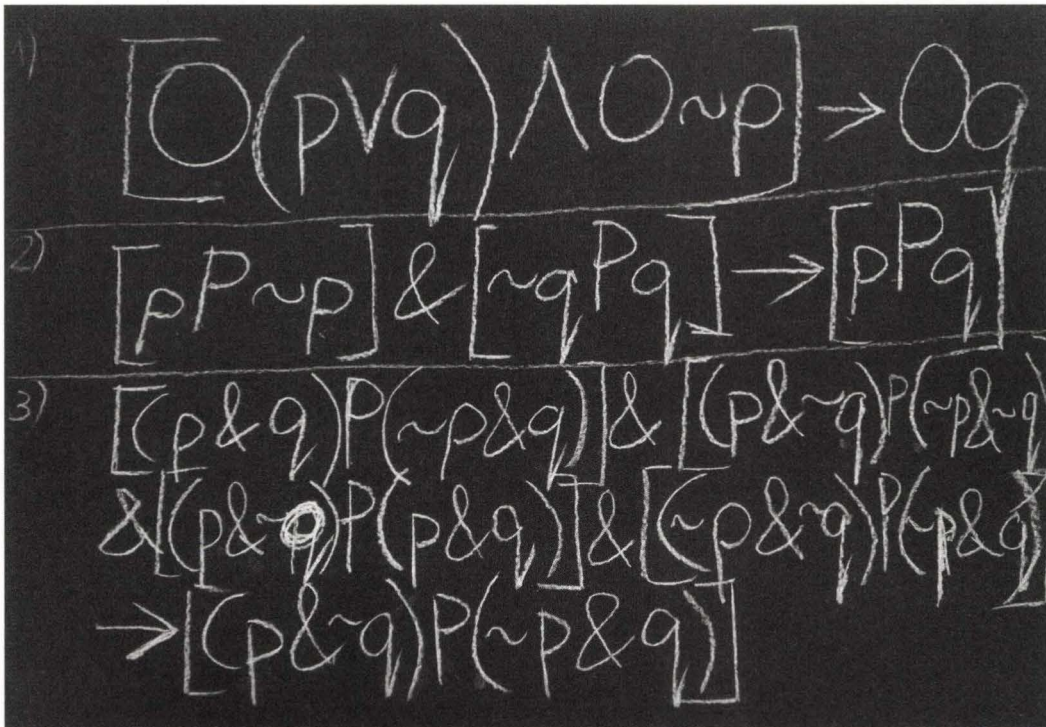 1) [O(p∨q)∧O~p]→Oq
2) [pP~p]&[~qPq]→[pPq]
3) [(p&q)P(~p&q)]&[(p&~q)P(~p&~q)
&[(p&~q)P(p&q)]&[(~p&~q)P(~p&q)]
→[(p&~q)P(~p&q)]